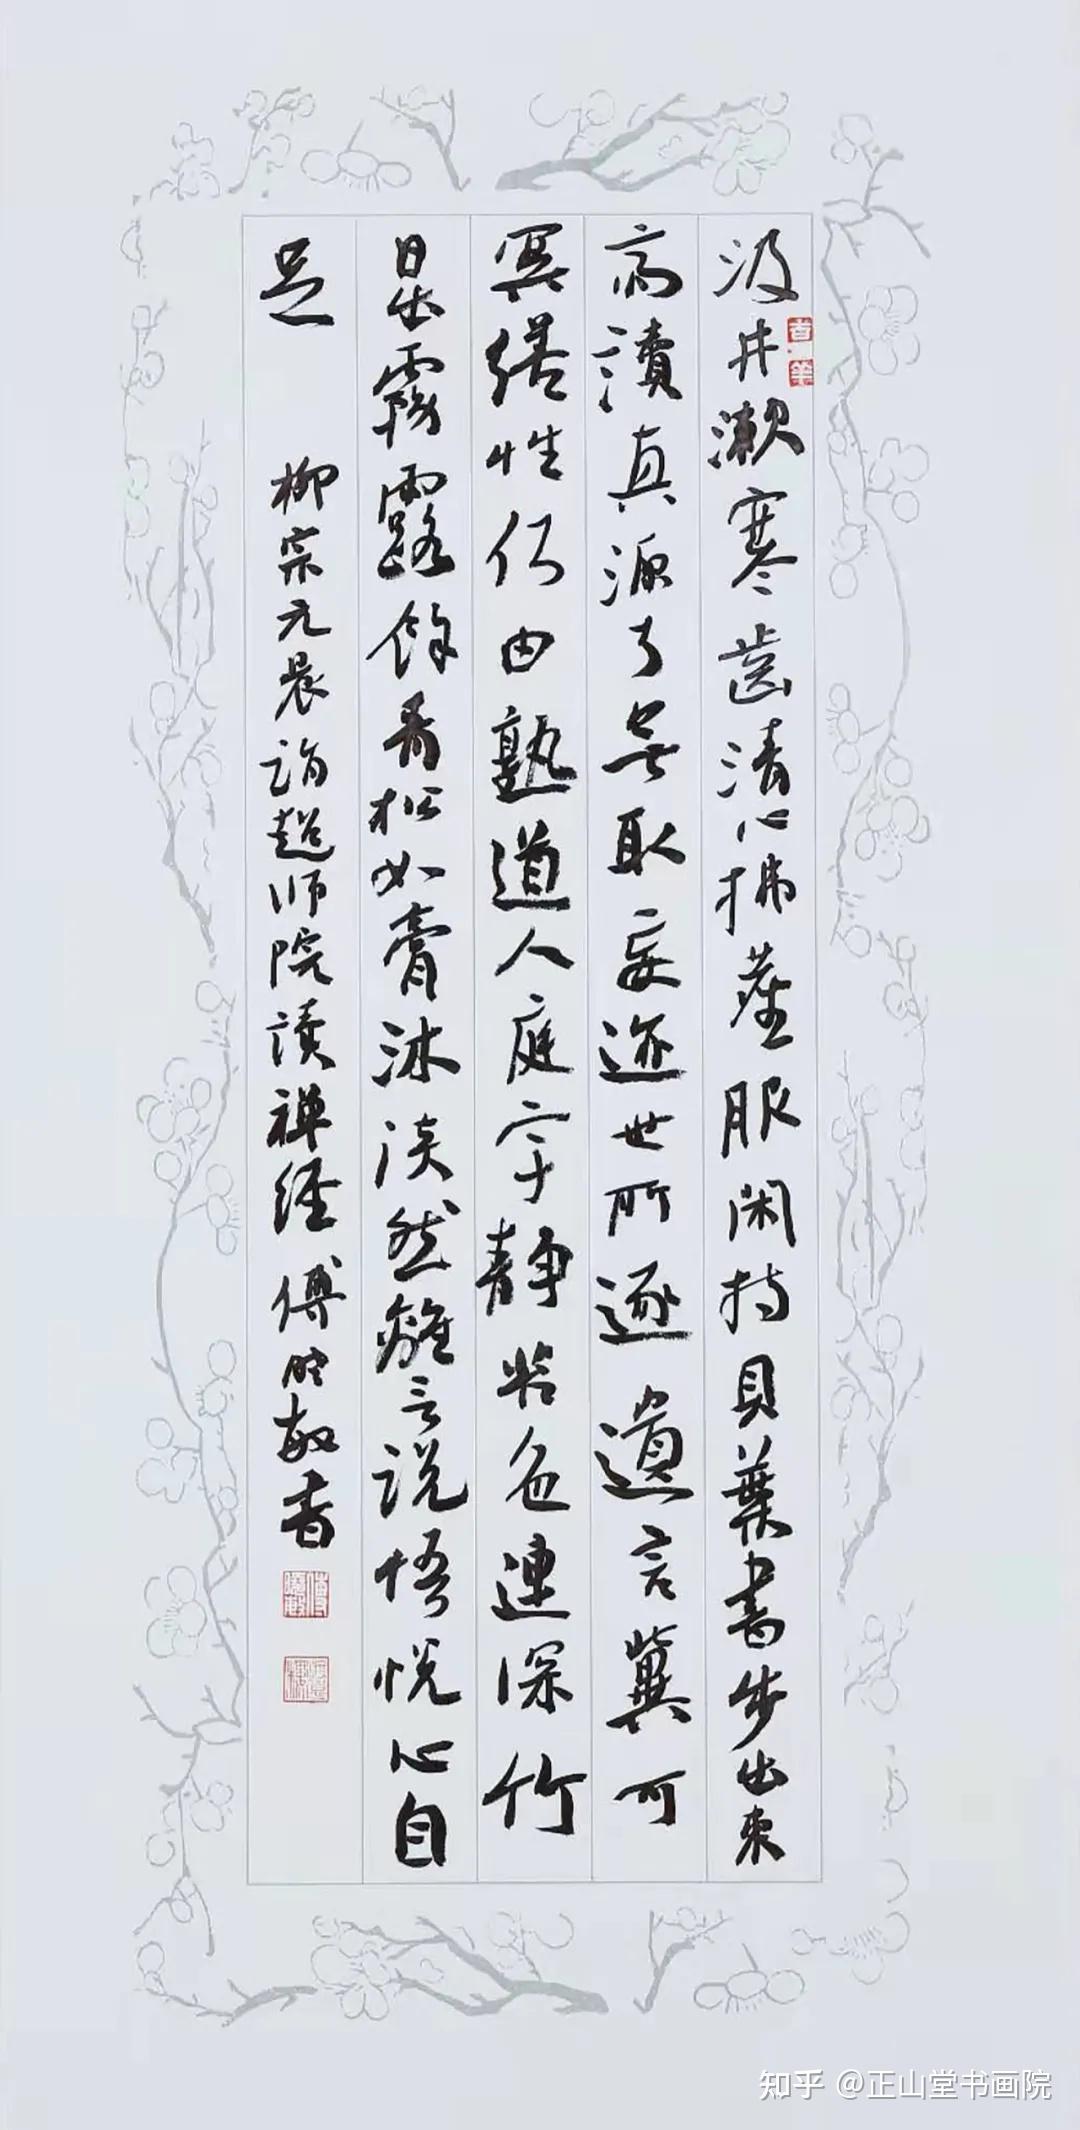 汲井漱寒齒清心拂塵服闲持貝葉書步出東
斋讀真源了無取妄迹世所逐遗言冀可
冥繕性何由熟道人庭宇静苔色連深竹
日出霧露餘青松如膏沐淡然離言说悟悦心自
足 柳宗元晨詣超师院讀禅经 傅晓敏書
知乎 @正山堂书画院